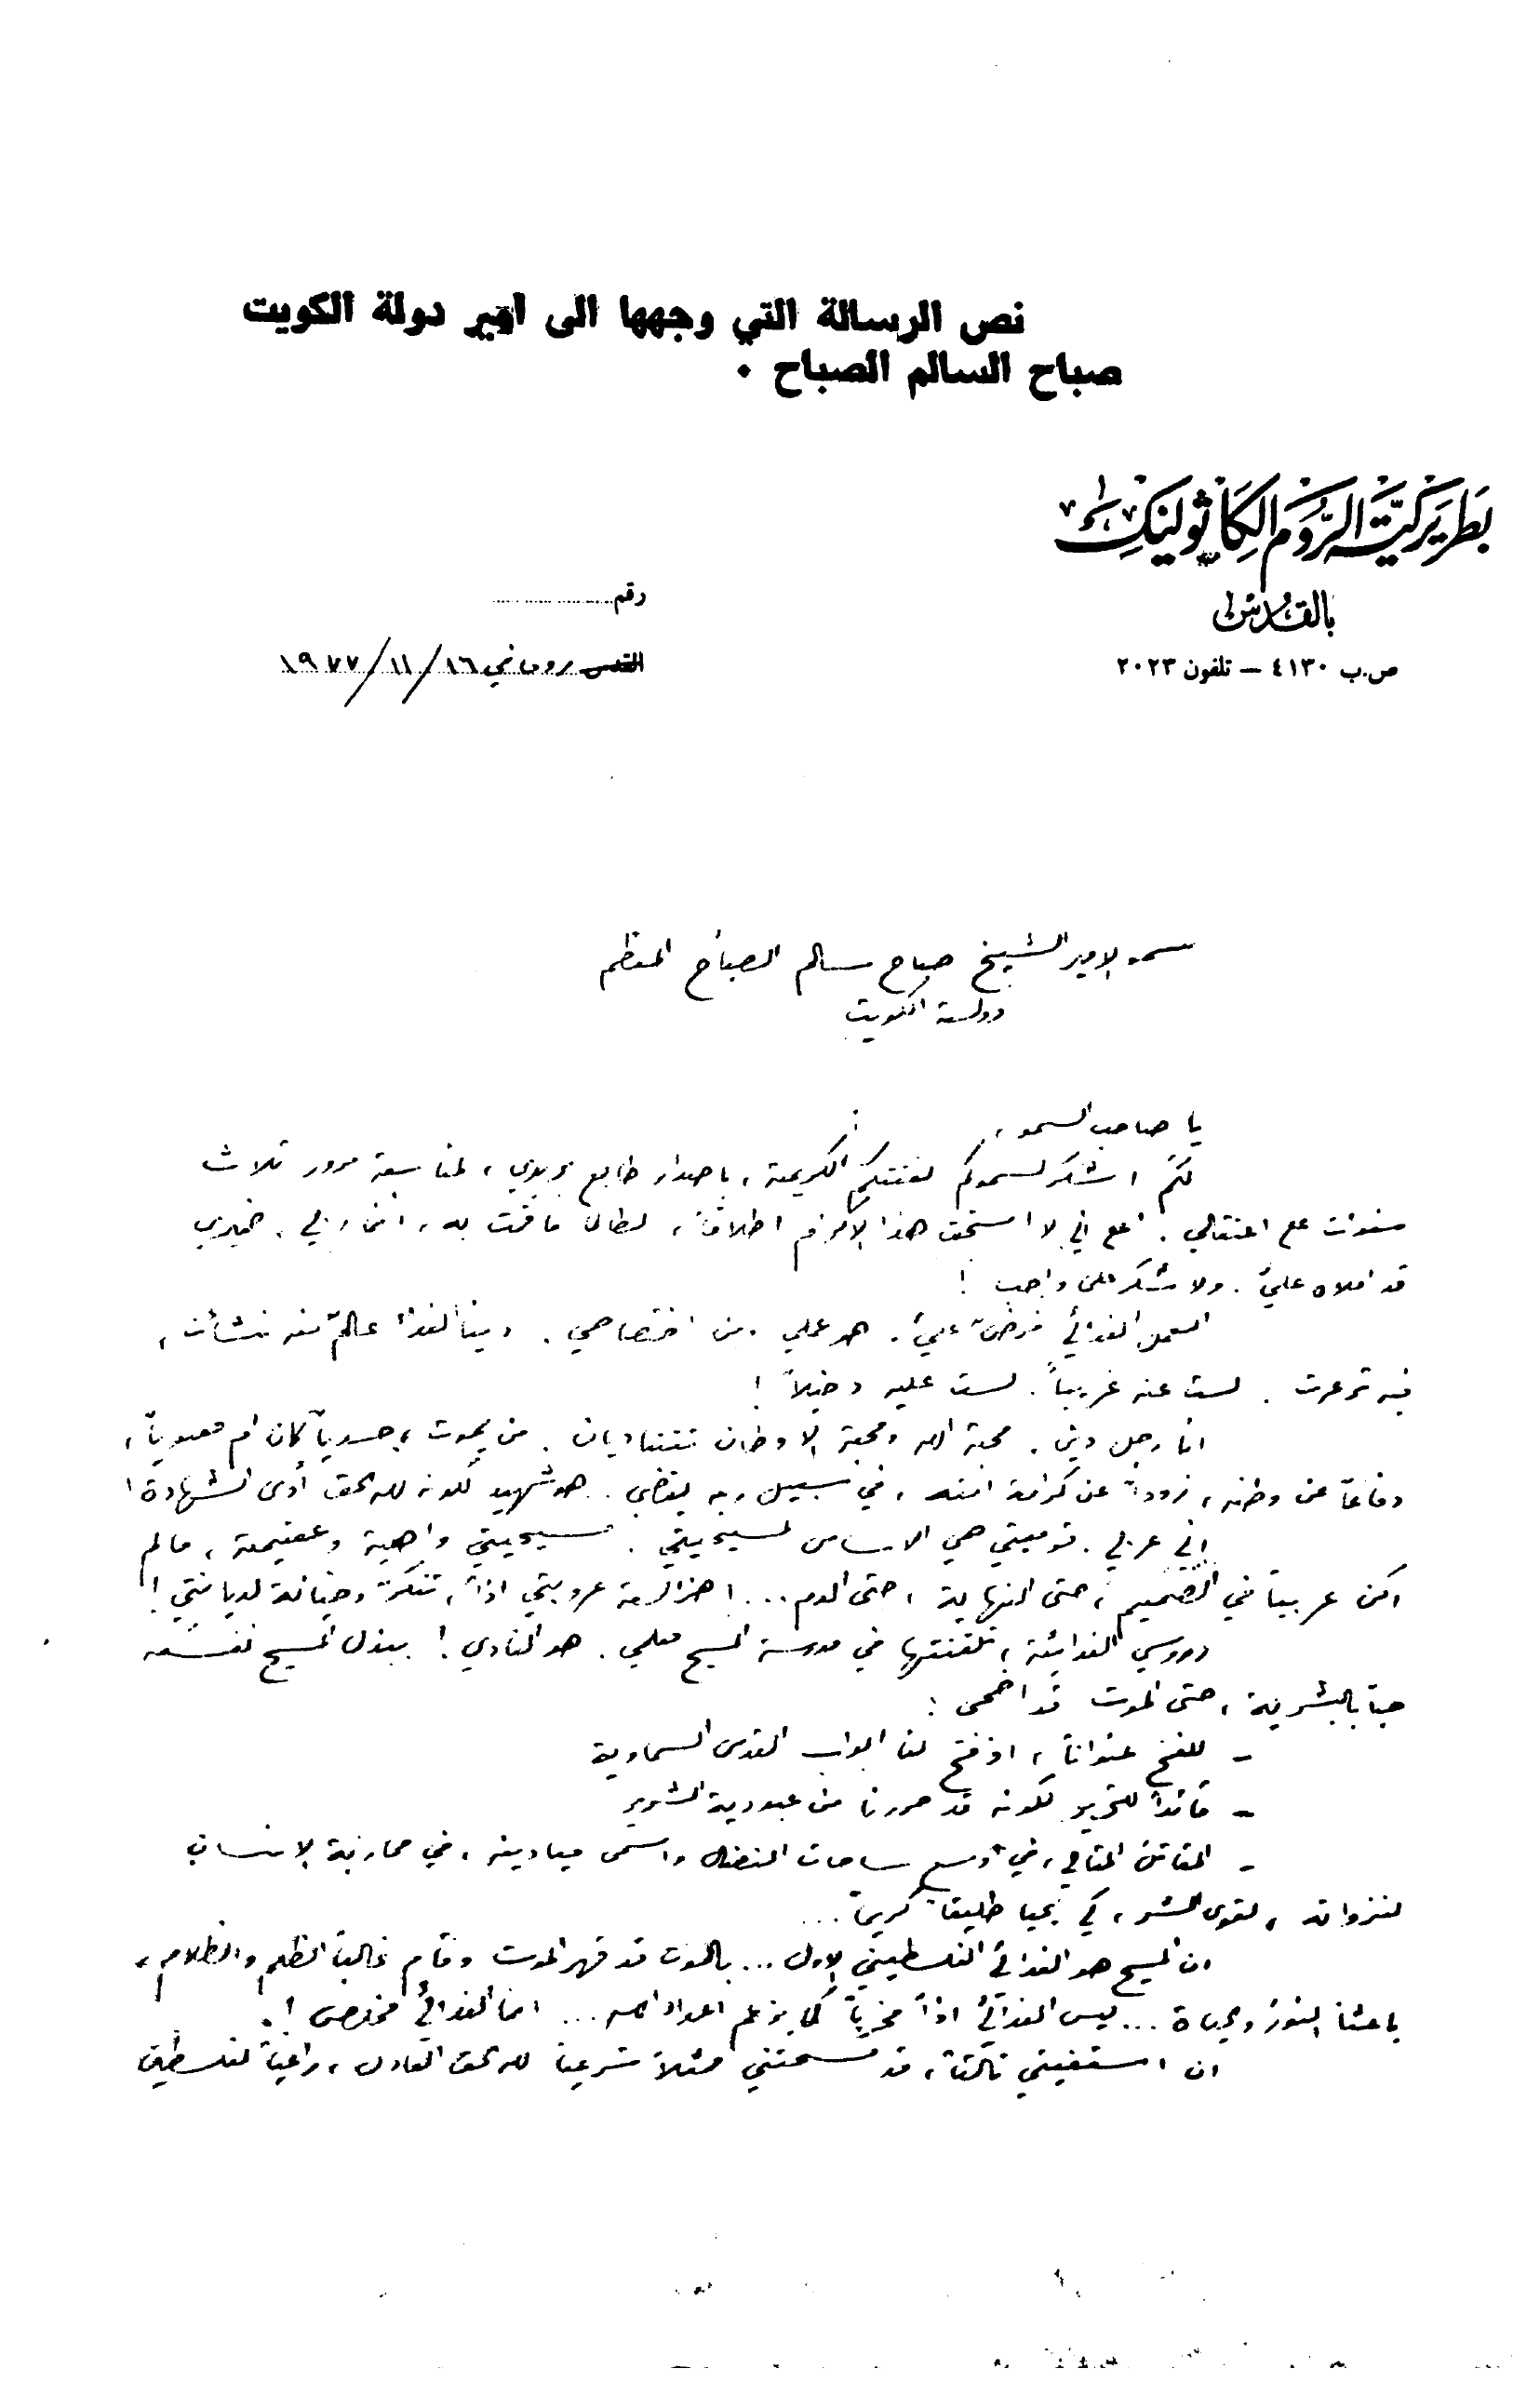 نص الرسالة التي وجهها الى امير دولة الكويت
صباح السالم الصباح .
بطريركية الروم الكاثوليك
بالقدس
ص.ب ٤١٣٠ – تلفون ٢٠٢٣
رقم
القدس روما في ١٦/١١/١٩٧٧
سمو الامير الشيخ صباح سالم الصباح المعظم
دولة الكويت
يا صاحب السمو ،
لكم اشكر لسموكم لفتتكم الكريمة ، باصدار طابع بريدي ، لمناسبة مرور ثلاث
سنوات على اعتقالي . اعلم اني لا استحق هذا الاكرام اطلاقاً ، لطالما قمت به ، انما ربي ، ضميري
قد املاه عليّ . ولا شكر على واجب !
العمل الفدائي فرض عليّ . هو عملي . من اختصاصي . دنيا الفدا عالم منه نشأت ،
فيه ترعرت . لست عنه غريباً . لست عليه دخيلاً !
انا رجل دين . محبة الله ومحبة الاوطان تتناديان . من يموت ، جسدياً كان ام معنوياً ،
دفاعاً عن وطنه ، ذوداً عن كرامة امته ، في سبيل ربه يقضي . هو شهيد لكونه للحق أدى الشهادة !
اني عربي . قوميتي هي الاساس لمسيحيتي . مسيحيتي واهية وعقيمة ، ما لم
اكن عربياً في الصميم ، حتى النهاية ، حتى الدم ... عروبتي اذاً ، تنكر وخيانة لديانتي !
دروسي الفدائية ، تلقنتها في مدرسة المسيح معلمي . هو الفادي ! ببذل المسيح نفسه
حباً بالبشرية ، حتى الموت قد اضحى :
– للفتح عنواناً ، اذ فتح لنا ابواب القدس السماوية
– قائداً للتحرير لكونه قد حررنا من عبودية الشرير
– المقاتل المثالي ، في اوسع ساحات النضال واسمى ميادينه ، في محاربة الانسان
لنزواته ، لقوى الشر ، كي يحيا طليقاً كريماً ...
ان المسيح هو الفدائي الفلسطيني الاول ... بالموت قد قهر الموت وقام غالباً الظلم والظلام ،
باعثاً النور والحياة ... ليس الفدائي اذاً مخرباً كما يزعم اعداء الله ... انما الفدائي مخلص !
ان اسقفيتي قد مسحتني ممثلاً شرعياً للحق العادل ، راعياً لفلسطين